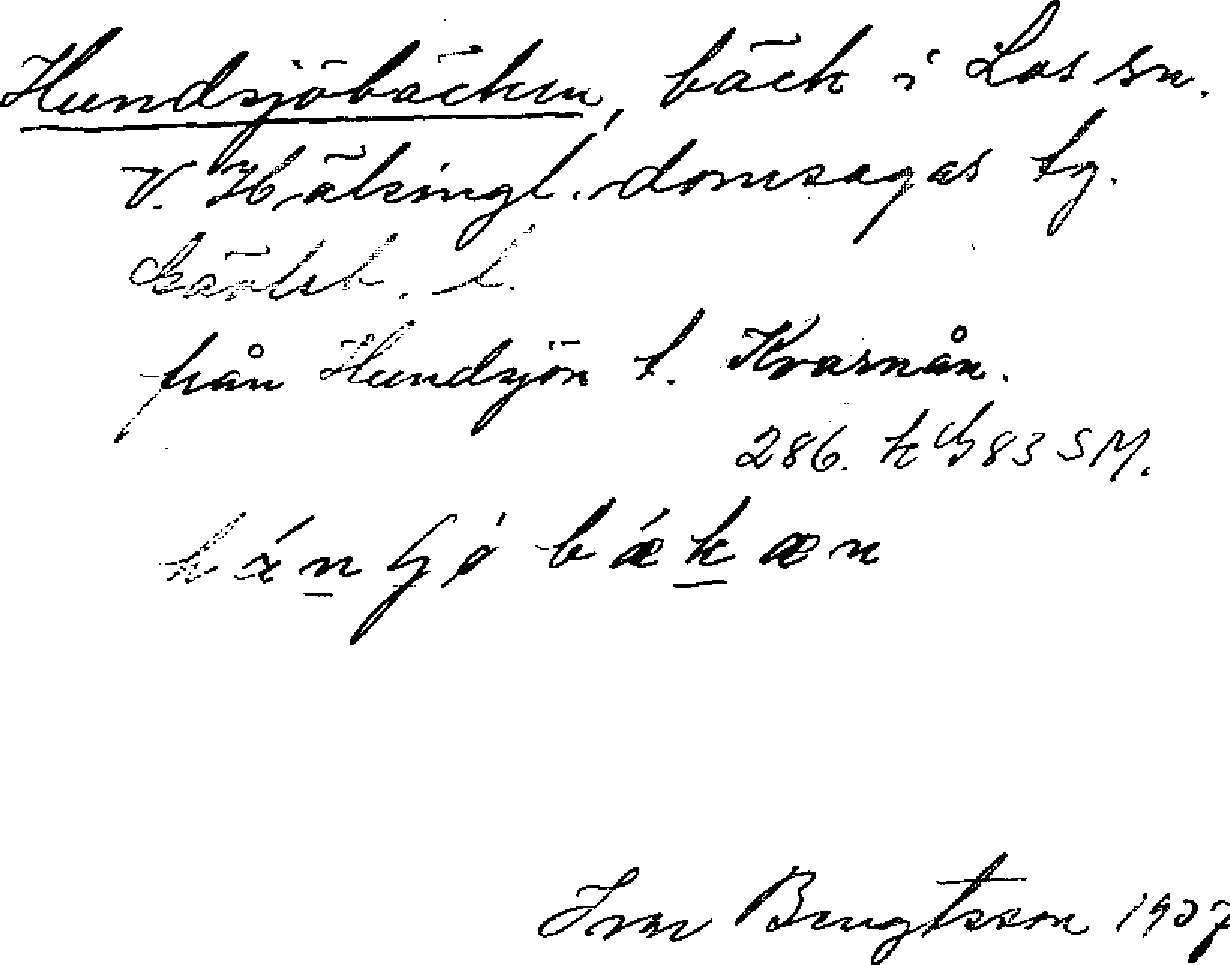 Hundsjöbäcken, bäck i Los sn.
V. Hälsingl. domsagas tg.
Gävleb. l.
från Hundsjön t. Kvarnån.
286. k G 83 SM.
bækæn
Ivar Bengtsson 1937